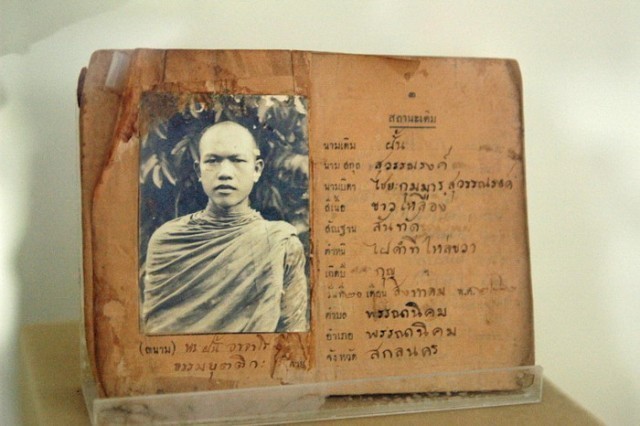 ๑
สถานะเดิม
นามเดิม ฝั้น
นามสกุล สุวรรณรงค์
นามบิดา ไชยะกุมมาร สุวรรณรงค์
สีเนื้อ ขาวเหลือง
สัณฐาน สันทัด
ตำหนิ ไฝดำที่ไหล่ขวา
เกิดปี กุญ
วันที่ ๒๐ เดือน สิงหาคม พ.ศ.
ตำบล พรรณานิคม
อำเภอ พรรณานิคม
จังหวัด สกลนคร
(ลงนาม) พระ ฝั้น อาจาโร
ธรรมยุตติกะ